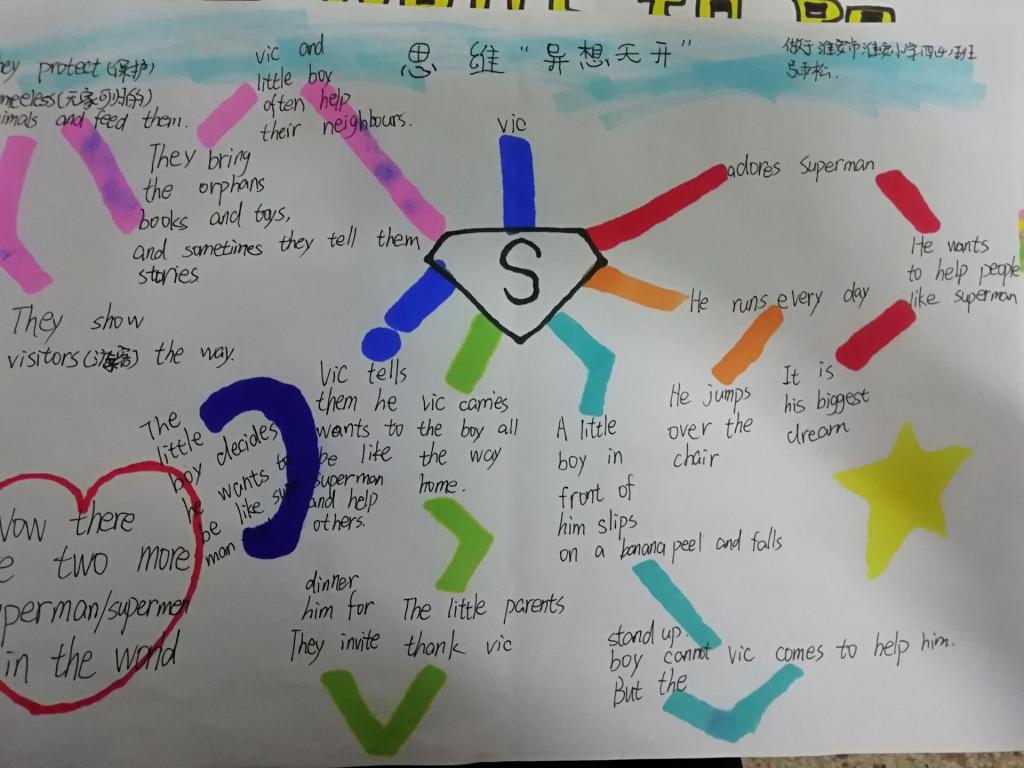 思维“异想天开”
vic
adores superman
He wants
to help people
like superman
It is
his biggest
dream
He runs every day
He jumps
over the
chair
A little
boy in
front of
him slips
on a banana peel and falls
But the
boy cannot
stand up.
vic comes to help him.
vic carries
the boy all
the way
home.
The little parents
thank vic
They invite
him for
dinner
Vic tells
them he
wants to
be like
superman
and help
others.
The
little
boy decides
he wants to
be like
man
vic and
little boy
often help
their neighbours.
They bring
the orphans
books and toys,
and sometimes they tell them
stories
protect (保护)
and feed them.
They show
visitors (游客) the way.
Now there
two more
in the world